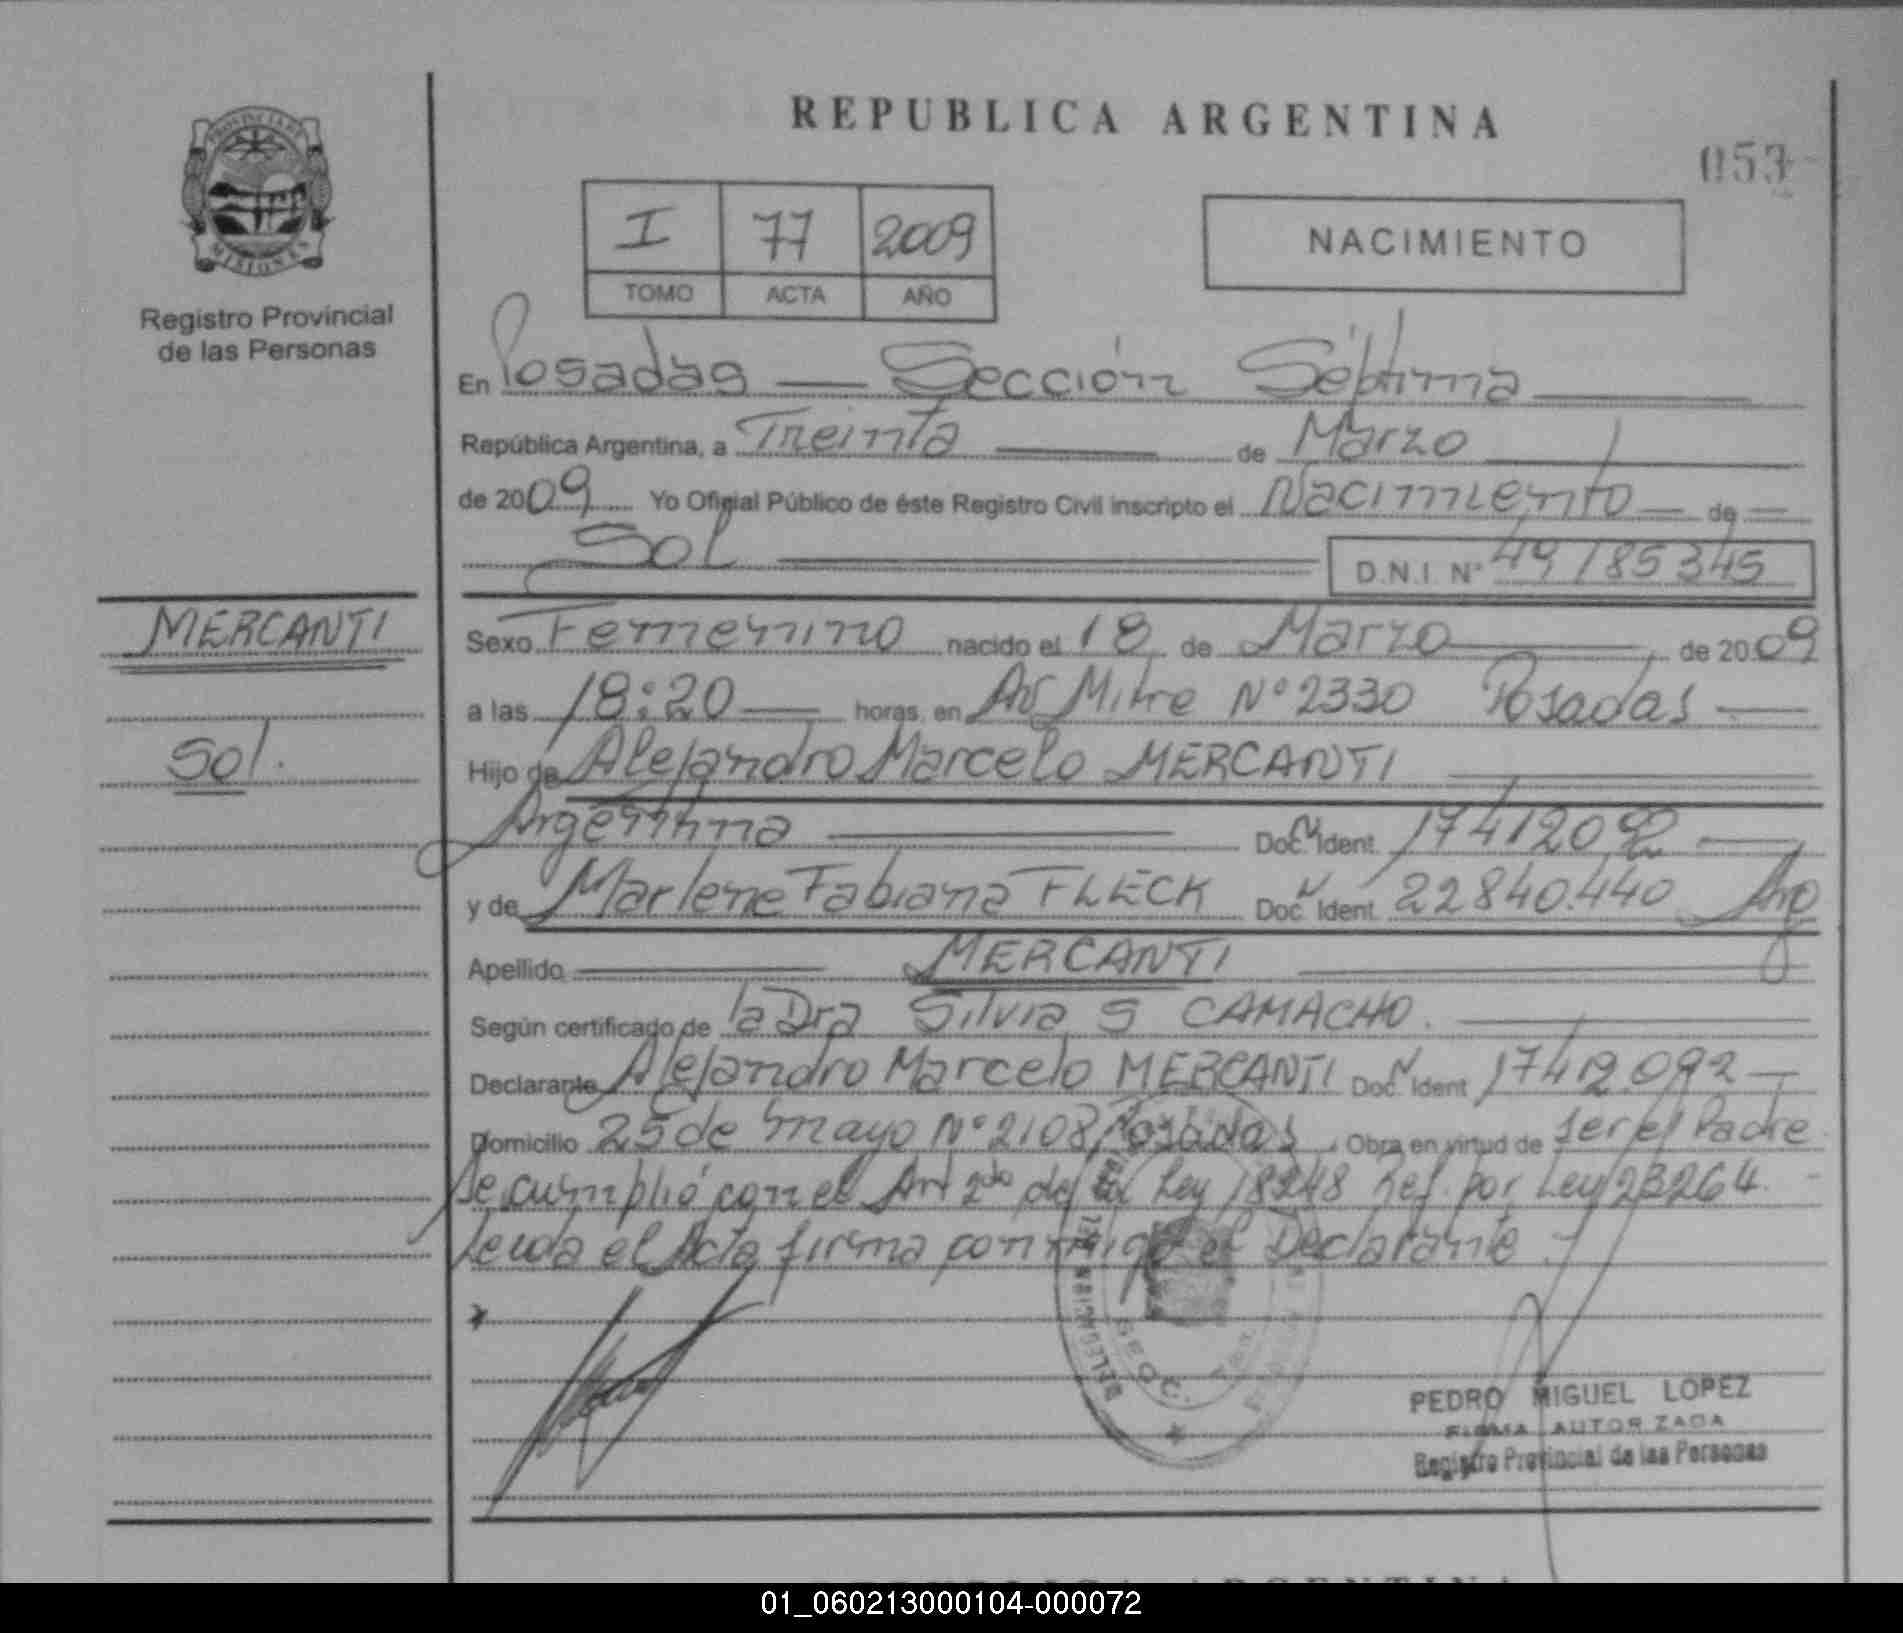 REPUBLICA ARGENTINA
053
PROVINCIA DE
MISIONES
Registro Provincial
de las Personas
I 77 2009
TOMO ACTA AÑO
NACIMIENTO
En Posadas — Sección Séptima
República Argentina, a Treinta de Marzo
de 2009 Yo Oficial Público de éste Registro Civil inscripto el Nacimiento de
Sol D.N.I. Nº 49185345
MERCANTI
Sol.
Sexo Femenino nacido el 18 de Marzo de 2009
a las 18:20 horas, en Av Mitre Nº 2330 Posadas
Hijo de Alejandro Marcelo MERCANTI
Argentina Doc. N Ident. 17412092
y de Marlene Fabiana FLECK Doc. N Ident. 22840.440 Arg
Apellido MERCANTI
Según certificado de la Dra Silvia S CAMACHO.
Declarante Alejandro Marcelo MERCANTI Doc. N Ident 17412.092
Domicilio 25 de Mayo Nº 2108 Posadas. Obra en virtud de ser el Padre
Se cumplió con el Art 2do de la Ley 18248 Ref. por Ley 23264.
Leida el Acta firma conmigo el Declarante
SECC.
PEDRO MIGUEL LOPEZ
FIRMA AUTORIZADA
Registro Provincial de las Personas
01_060213000104-000072